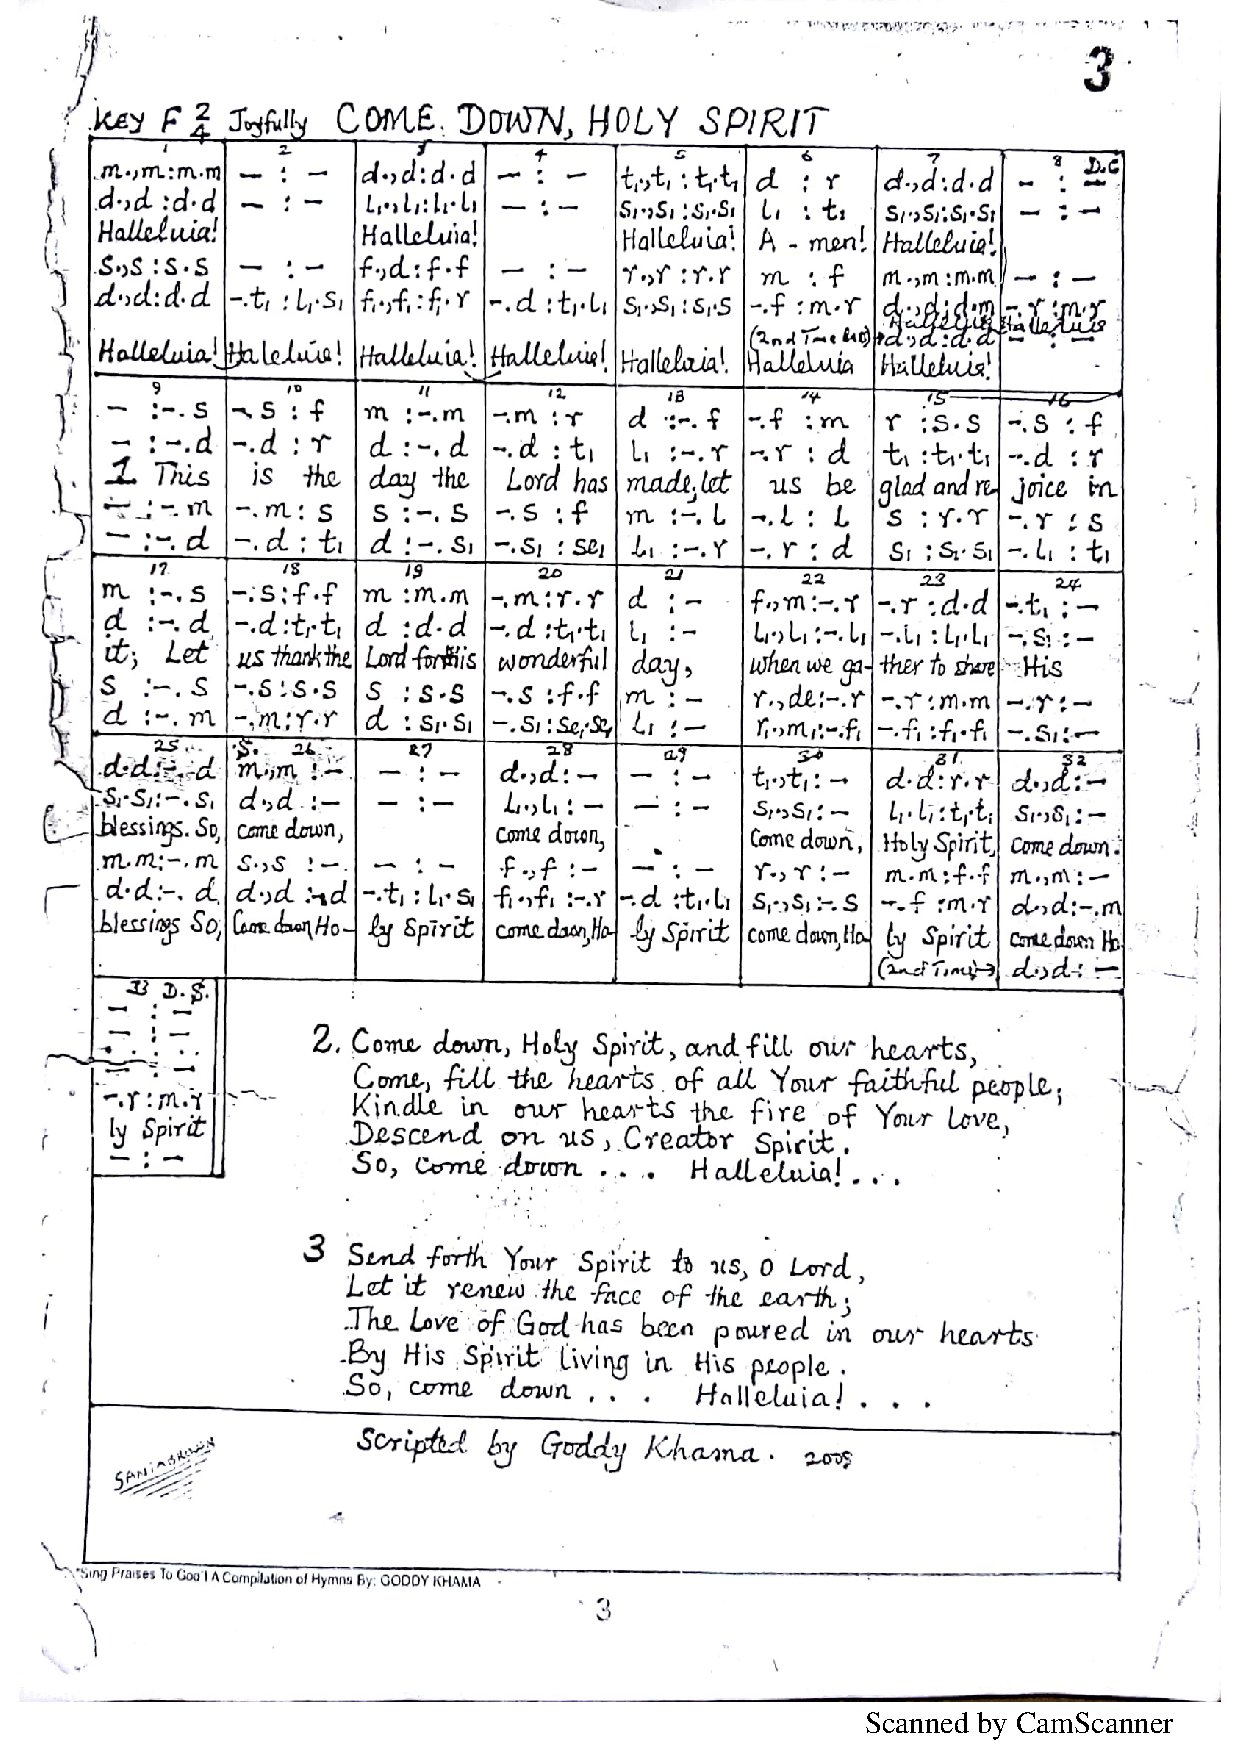 3
Key F 2/4 Joyfully COME DOWN, HOLY SPIRIT
1 2 3 4 5 6 7 8 D.C
m.,m:m.m | – : – | d.,d:d.d | – : – | t₁.,t₁:t₁.t₁ | d : r | d.,d:d.d | – : –
d.,d:d.d | – : – | l₁.,l₁:l₁.l₁ | – : – | s₁.,s₁:s₁.s₁ | l₁ : t₁ | s₁.,s₁:s₁.s₁ | – : –
Halleluia! Halleluia! Halleluia! A - men! Halleluia!
s.,s:s.s | – : – | f.,d:f.f | – : – | r.,r:r.r | m : f | m.,m:m.m | – : –
d.,d:d.d | –.t₁:l₁.s₁ | f₁.,f₁:f₁.r | –.d:t₁.l₁ | s₁.,s₁:s₁.s | –.f:m.r | d.,d:d.m | –.r:m.r
Halleluia Halleluia
(2nd Time bar) d.,d:d.d | – : –
Halleluia! Haleluia! Halleluia! Halleluia! Halleluia! Halleluia Halleluia!
9 10 11 12 13 14 15 16
– :–.s | –.s : f | m :–.m | –.m : r | d :–.f | –.f : m | r :s.s | –.s : f
– :–.d | –.d : r | d :–.d | –.d : t₁ | l₁ :–.r | –.r : d | t₁ :t₁.t₁ | –.d : r
1 This is the day the Lord has made, let us be glad and re- joice in
– :–.m | –.m : s | s :–.s | –.s : f | m :–.l | –.l : l | s :r.r | –.r : s
– :–.d | –.d : t₁ | d :–.s₁ | –.s₁ : se₁ | l₁ :–.r | –.r : d | s₁ :s₁.s₁ | –.l₁ : t₁
17 18 19 20 21 22 23 24
m :–.s | –.s:f.f | m :m.m | –.m:r.r | d : – | f.,m:–.r | –.r :d.d | –.t₁ : –
d :–.d | –.d:t₁.t₁ | d :d.d | –.d:t₁.t₁ | l₁ : – | l₁.,l₁:–.l₁ | –.l₁ :l₁.l₁ | –.s₁ : –
it; Let us thank the Lord for this wonderful day, when we ga- ther to share His
s :–.s | –.s:s.s | s :s.s | –.s :f.f | m : – | r.,de:–.r | –.r:m.m | –.r : –
d :–.m | –.m:r.r | d :s₁.s₁ | –.s₁:se₁.se₁ | l₁ : – | r₁.,m₁:–.f₁ | –.f₁ :f₁.f₁ | –.s₁ : –
25 S. 26 27 28 29 30 31 32
d.d:–.d | m.,m :– | – : – | d.,d:– | – : – | t₁.,t₁:– | d.d:r.r | d.,d:–
s₁.s₁:–.s₁ | d.,d :– | – : – | l₁.,l₁:– | – : – | s₁.,s₁:– | l₁.l₁:t₁.t₁ | s₁.,s₁:–
blessings. So, come down, come down, Come down, Holy Spirit, come down.
m.m:–.m | s.,s :– | – : – | f.,f :– | – : – | r.,r :– | m.m:f.f | m.,m:–
d.d:–.d | d.,d :–.d | –.t₁:l₁.s₁ | f₁.,f₁:–.r | –.d :t₁.l₁ | s₁.,s₁:–.s | –.f :m.r | d.,d:–.m
blessings So, Come down, Ho- ly Spirit come down, Ho- ly Spirit come down, Ho ly Spirit come down Ho-
(2nd Time) d.,d: –
33 D.S.
– : –
– : –
– : –
–.r:m.r
ly Spirit
– : –
2. Come down, Holy Spirit, and fill our hearts,
Come, fill the hearts of all Your faithful people;
Kindle in our hearts the fire of Your Love,
Descend on us, Creator Spirit.
So, come down . . . . Halleluia! . . .
3 Send forth Your Spirit to us, O Lord,
Let it renew the face of the earth;
The Love of God has been poured in our hearts
By His Spirit living in His people.
So, come down . . . Halleluia! . . .
Scripted by Goddy Khama. 2005
"Sing Praises To God'! A Compilation of Hymns By: GODDY KHAMA
3
Scanned by CamScanner